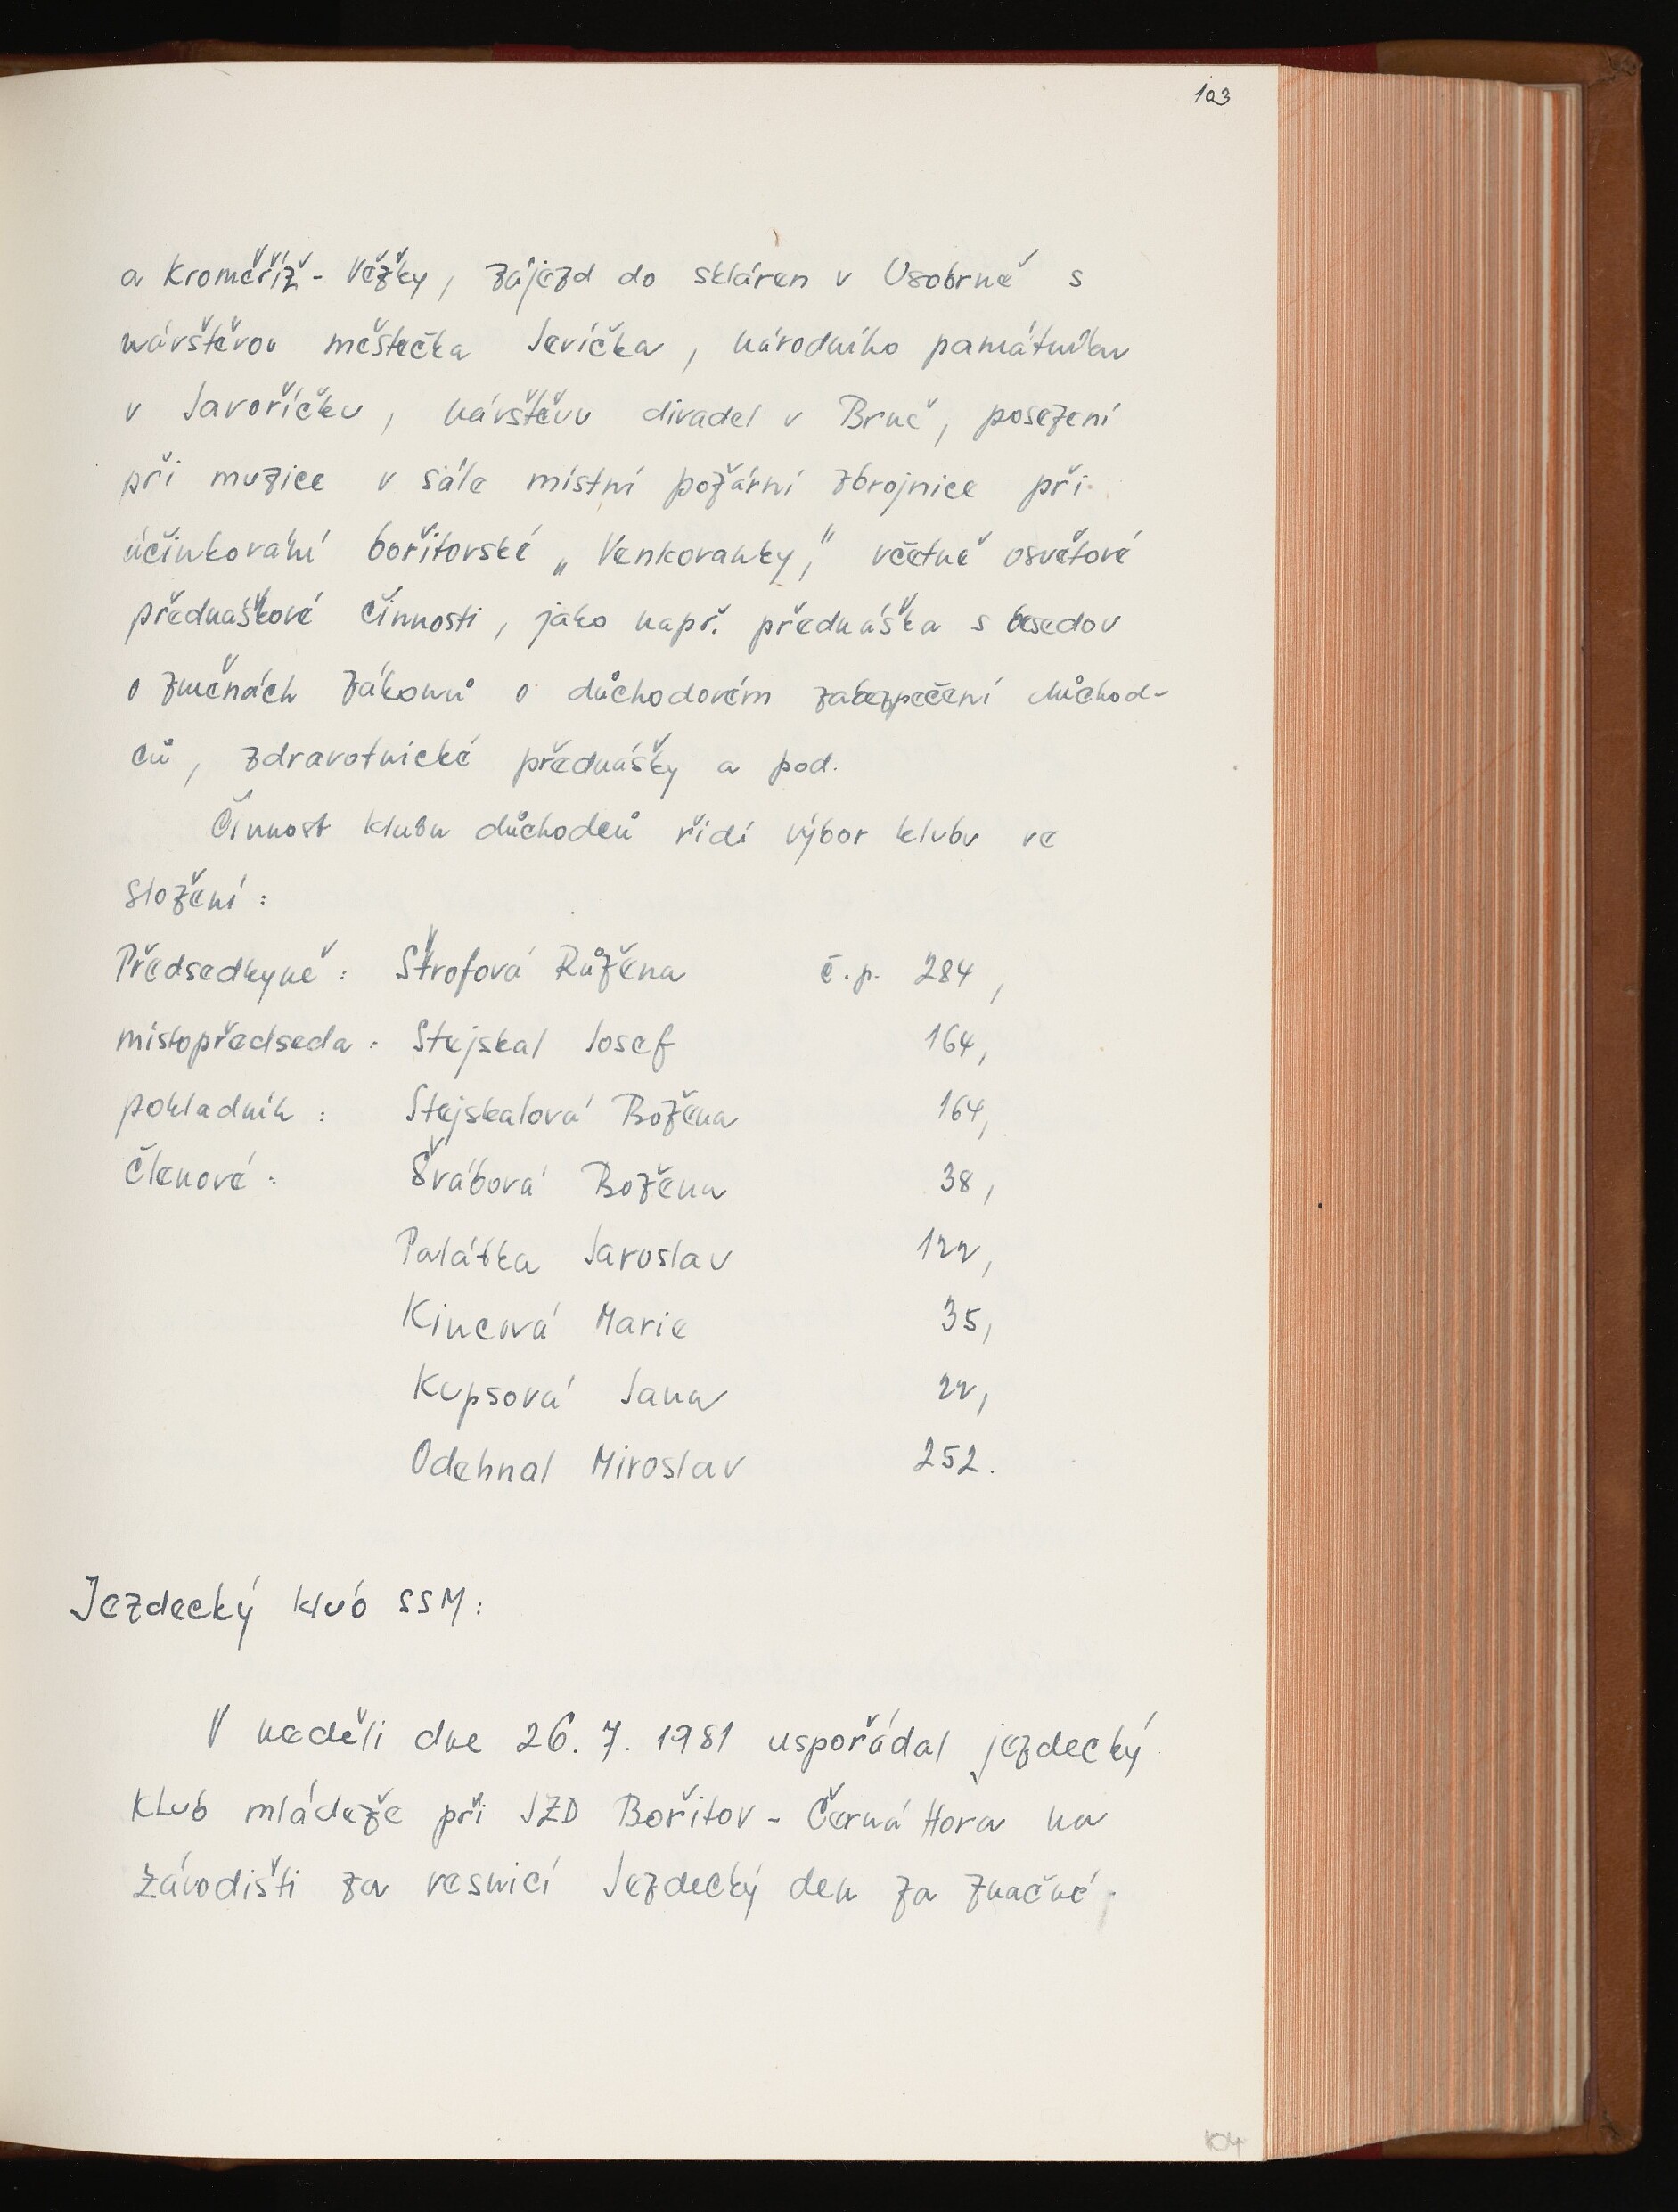 103
a Kroměříž - Věžky, zájezd do skláren v Úsobrně s
návštěvou městečka Jevíčka, národního památníku
v Javoříčku, návštěvu divadel v Brně, posezení
při muzice v sále místní požární zbrojnice při
účinkování bořitovské „Venkovanky," včetně osvětové
přednáškové činnosti, jako např. přednáška s besedou
o změnách zákonů o důchodovém zabezpečení důchod-
ců, zdravotnické přednášky a pod.
Činnost klubu důchodců řídí výbor klubu ve
složení:
Předsedkyně: Štrofová Růžena č.p. 284,
místopředseda: Stejskal Josef 164,
pokladník: Stejskalová Božena 164,
Členové: Švábová Božena 38,
Palátka Jaroslav 122,
Kincová Marie 35,
Kupsová Jana 22,
Odehnal Miroslav 252.
Jezdecký klub SSM:
V neděli dne 26. 7. 1981 uspořádal jezdecký
klub mládeže při JZD Bořitov - Černá Hora na
závodišti za vesnicí Jezdecký den za značné
104